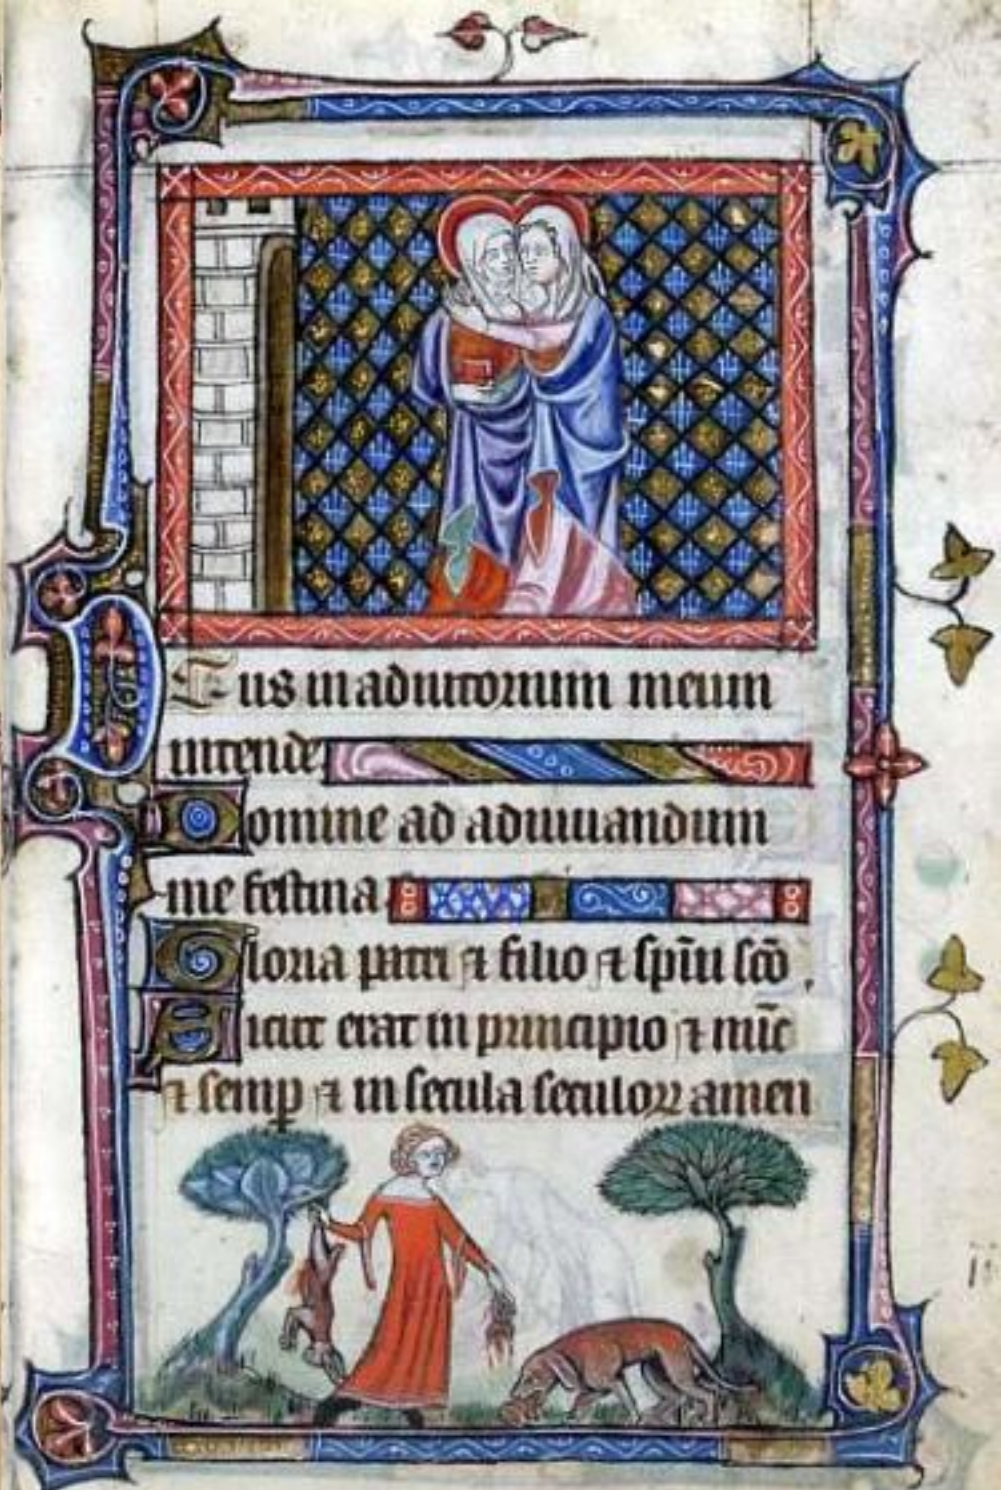 Deus in adiutorium meum
intende
Domine ad adiuuandum
me festina
Gloria patri ⁊ filio ⁊ sp̄iu sc̄o
Sicut erat in principio ⁊ nūc
⁊ semꝑ ⁊ in secula seculoꝝ amen